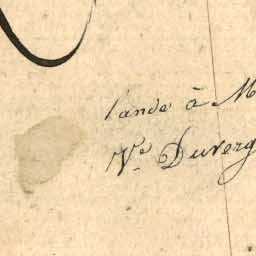 lande à M
Ve Duverg